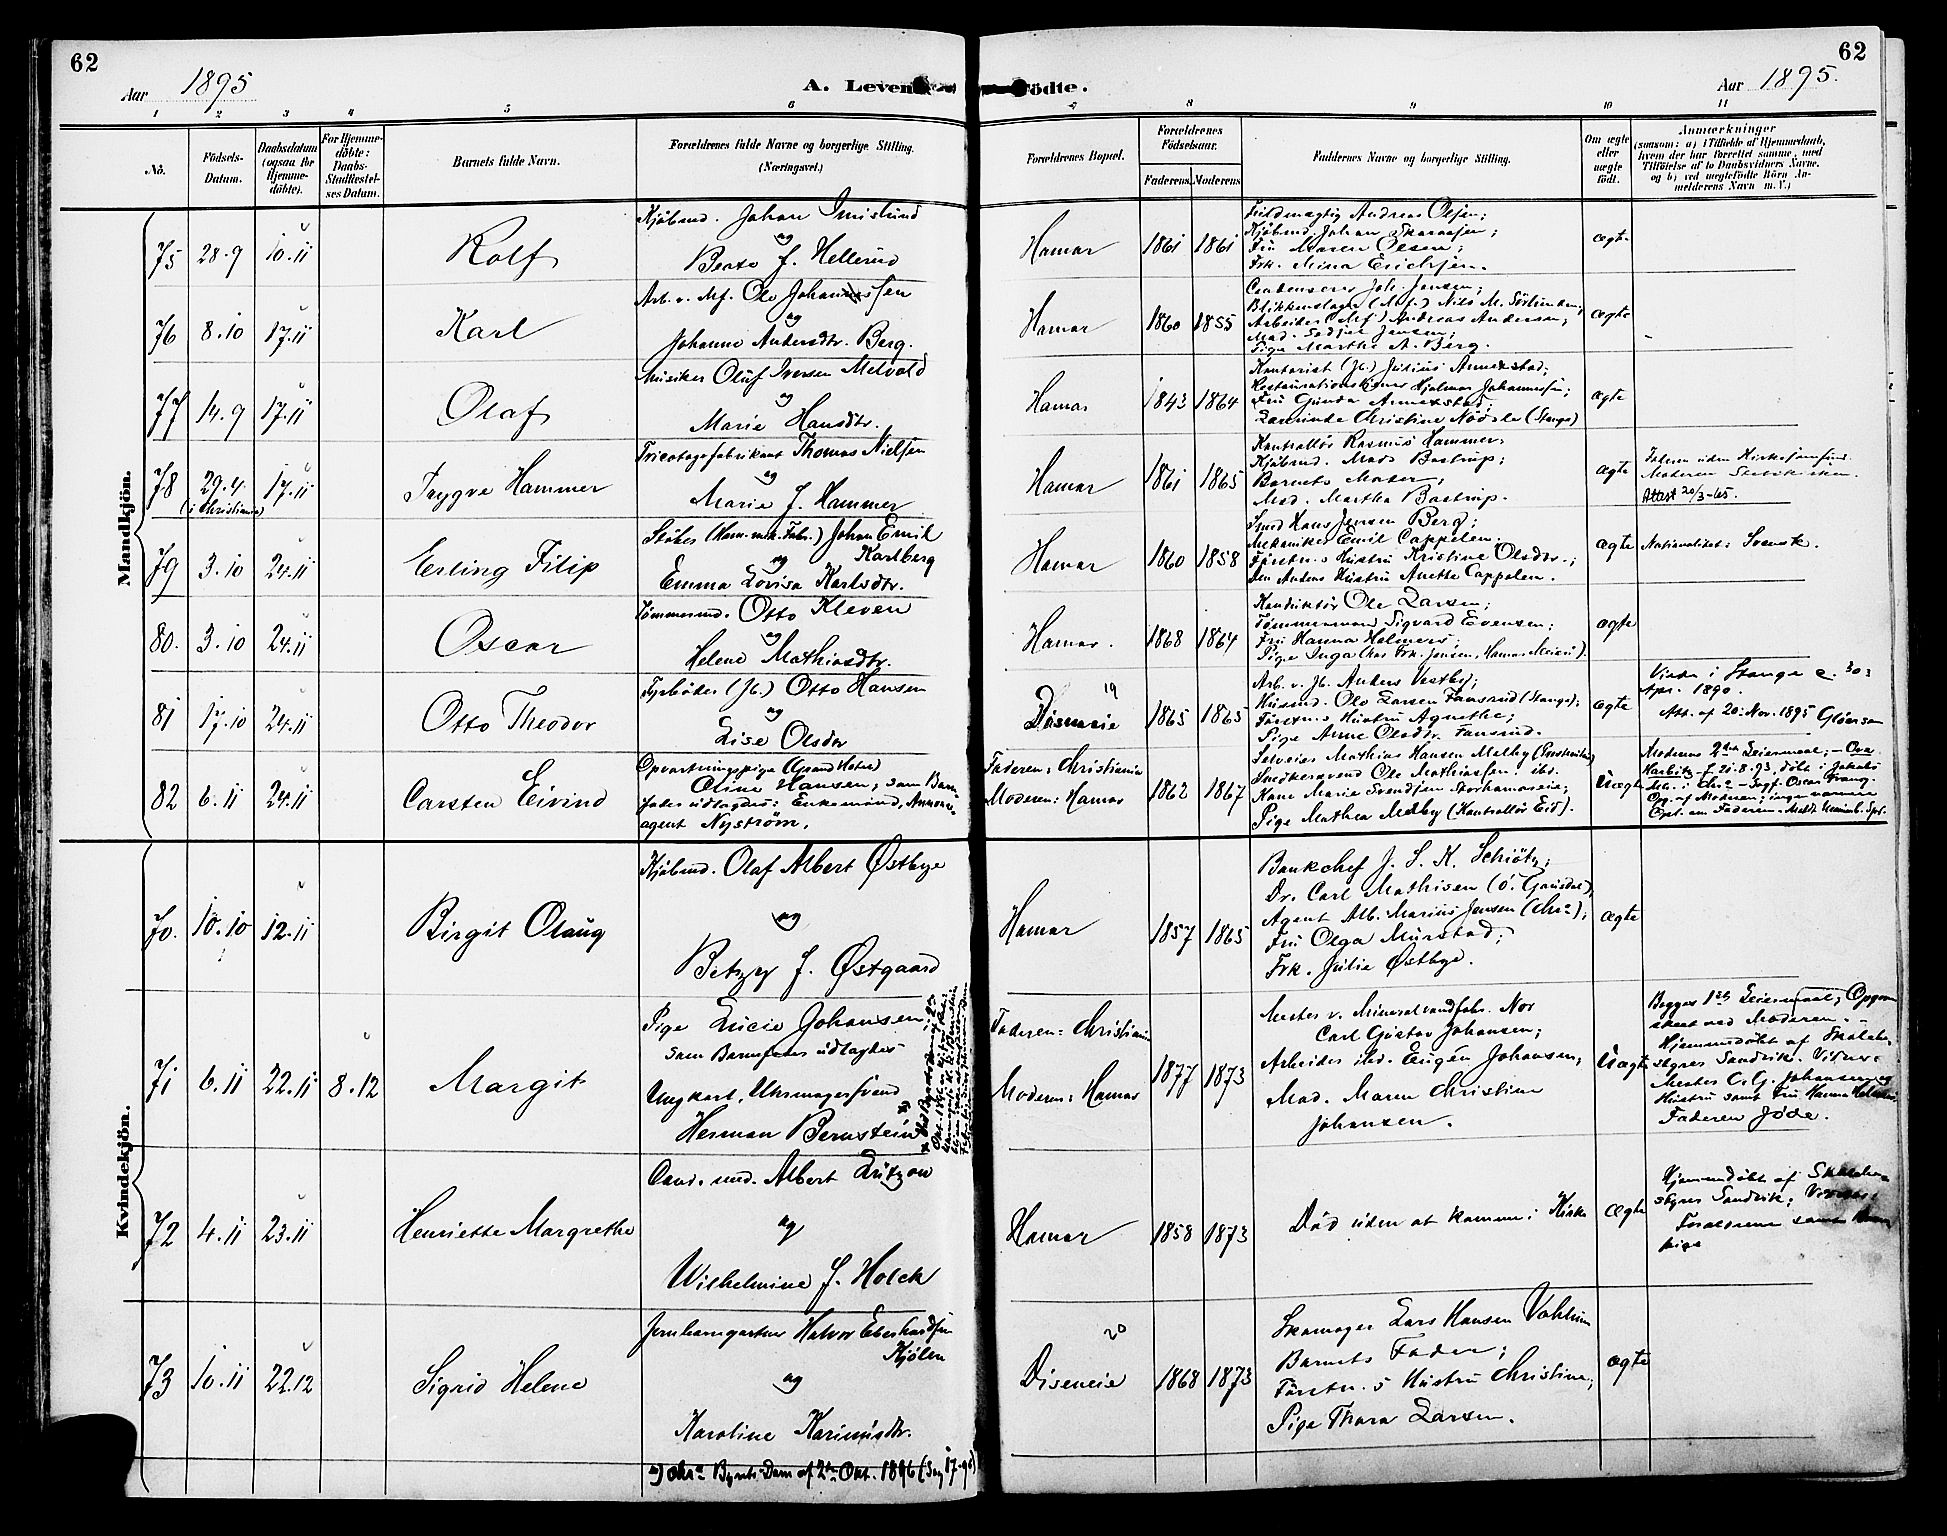 62
Aar 1895
A. Levende
Födte.
Aar 1895.
62
1 2 3 4 5 6 7 8 9 10 11
No.
Födsels-Datum.
Daabsdatum (ogsaa for Hjemme-döbte).
For Hjemme-döbte: Daabs-Stadfæstel-ses Datum.
Barnets fulde Navn.
Forældrenes fulde Navne og borgerlige Stilling.
(Næringsvei.)
Forældrenes Bopæl.
Forældrenes Födselsaar.
Faderens. Moderens
Faddernes Navne og borgerlige Stilling.
Om ægte eller uægte födt.
Anmærkninger
(saasom: a) i Tilfælde af Hjemmedaab,
hvem der har forrettet samme, med
Tilföielse af to Daabsvidners Navne.
og b) ved uægtefödte Börn An-
melderens Navn m. V.)
Mandkjön.
75 28.9 10.11 Rolf
Kjøbmd. Johan Imislund
og
Beate J. Hellerud
Hamar 1861 1861
Fuldmægtig Andreas Olsen;
Kjøbmd. Johan Skaraasen;
Fru Maren Olsen;
Frk. Mina Erichsen.
ægte
76 8.10 17.11 Karl
Arb. v. Mf. Ole Johannssen
og
Johanne Andersdtr. Berg.
Hamar 1860 1855
Condenserer Joh. Jensen;
Blikkenslager (Mf.) Nils M.
Arbeider (Mf) Andreas Andersen;
Mad. Jensen;
Pige Marthe A. Berg.
ægte
77 14.9 17.11 Olaf
Musiker Oluf Iversen Melvold
og
Marie Hansdtr.
Hamar 1843 1864
Kontorist (Jb.) Julius Annexstad;
Restaurationskjener Hjalmar Johannesen;
Fru Gunda Annexstad;
Christine Nødste (Stange)
ægte
78 29.4. (i Christiania) 17.11 Trygve Hammer
Tricotagefabrikant Thomas Nielsen
og
Marie J. Hammer
Hamar 1861 1865
Kontrollør Rasmus Hammer;
Kjøbmd. Mads Bastrup;
Barnets Moder;
Mad. Martha Bastrup.
ægte
Faderen uden Kirkesamfund.
Moderen
Attest 20/3-65.
79 3.10 24.11 Erling Filip
Støber (Ham. mek. Fabr.) Johan Emil
Karlberg
og
Emma Lovisa Karlsdtr.
Hamar 1860 1858
Smed Hans Jensen Berg;
Mekaniker Emil Cappelen;
Førstn.s Hustru Kristine Olsdtr.;
den Andens Hustru Anette Cappelen.
ægte
Nationalitet: Svensk.
80. 3.10 24.11 Oscar
Tømmermd. Otto Kleven
og
Helene Mathiasdtr.
Hamar. 1868 1864
Konduktør Ole Larsen;
Tømmermand Sigvard Evensen;
Fru Hanna Helmers;
Pige Inga (hos Frk. Jensen, Hamar Meieri).
ægte
81 17.10 24.11 Otto Theodor
Fyrbøder (Jb.) Otto Hansen
og
Lise Olsdtr
19
Diseneie 1865 1865
Arb. v. Jb. Anders Vestby;
Husmd. Ole Larsen Fansrud (Stange);
Førstn.s Hustru Agnethe;
Pige Anne Olsdtr. Fansrud.
ægte
Viede i Stange e. 30
Apr. 1890.
Att. af 20. Nov. 1895 Gløersen
82 6.11 24.11 Carsten Eivind
Opvartningspige (Grand Hotel)
Oline Hansen, som Bar-
fader udlagdes: Enkemand, Annonce-
agent Nyström.
Faderen: Christiania
Moderen: Hamar
1862 1867
Selveier Mathias Hansen Melby
Snedkersvend Ole Mathiassen ibd.
Kone Marie Svendsen Storhamareie;
Pige Mathea Melby (Kontrollør Eid).
Uægte
Moderens 2det Leiermaal;
f. 21.8.93, døbt i Jakobs
i Chra.
Opg. af Moderen; ingen
Faderen.
Kvindekjön.
70. 10.10 12.11 Birgit Olaug
Kjøbmd. Olaf Albert Østbye
og
Betzy J. Østgaard
Hamar 1857 1865
Bankchef J. S. K. Schiøtz;
Dr. Carl Mathisen (Ö. Gausdal);
Agent Alb. Marius Jensen (Chra);
Fru Olga Murstad;
Frk. Julie Østbye.
ægte
71 6.11 22.11 8.12 Margit
Pige Lucie Johansen,
som Barnefader udlagdes
Ungkarl, Uhrmagersvend
Herman Bernstein
Faderen: Christiania
Moderen: Hamar
1877 1873
Mester v. Mineralvandfabr. Nor
Carl Gustav Johansen;
Arbeider ibd. Eugén Johansen;
Mad. Maren Christine
Johansen.
Uægte
Begges 1ste Leiermaal; Opgivn.
skeet ved Moderen. -
Hjemmedøbt af Skolebe-
styrer Sandvik. Vidner:
Mester C. G. Johansen og
Hustru samt Fru Hanna
Faderen Jøde.
72 4.11 23.11 Henriette Margrethe
Cand. med. Albert Lützow
og
Wilhelmine J. Holck
Hamar 1858 1873
Død uden at komme i Kirke
ægte
Hjemmedøbt af Skolebe-
styrer Sandvik; Vidner:
Forældrene samt
pige
73 10.11 22.12 Sigrid Helene
Jernbanegartner Halvor Eberhardsen
Kjølen
og
Karoline Karinusdtr.
20
Diseneie 1868 1873
Skomager Lars Hansen Vahlum
Barnets Fader;
Førstn.s Hustru Christine;
Pige Thora Larsen.
ægte
*) Chra Byrets Dom af 2de Okt. 1896 (Sag 17-96)